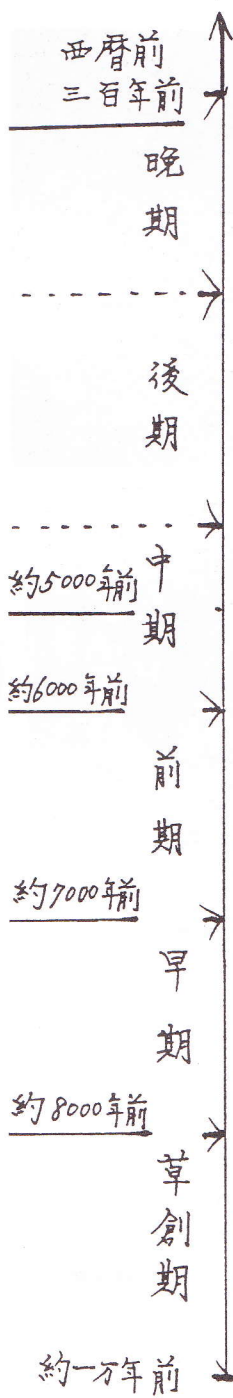 西暦前
三百年前
晩期
後期
中期
約5000年前
約6000年前
前期
約7000年前
早期
約8000年前
草創期
約一万年前